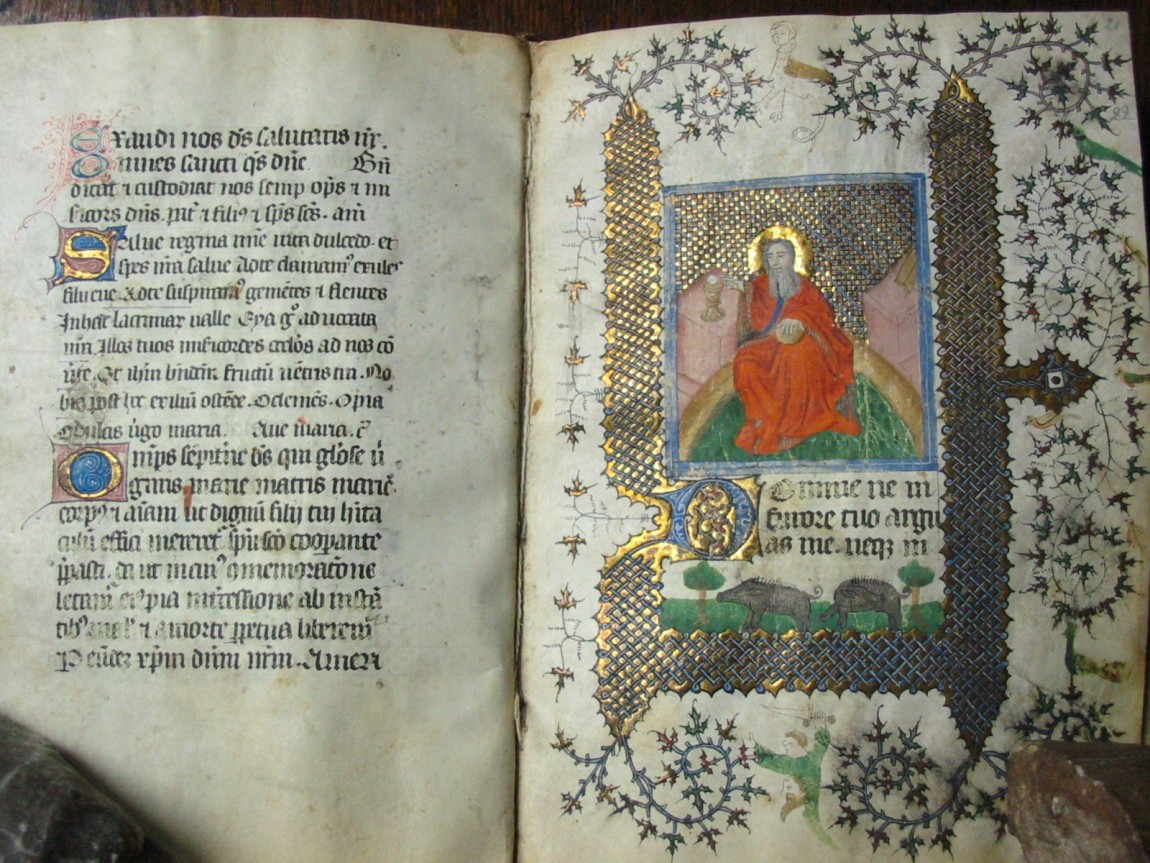 Exaudi nos ds salutaris nr.
Omnes sancti qs dne. Bn
dicat ⁊ custodiat nos semp ops ⁊ mi
sicors dns. pat ⁊ filiꝰ ⁊ sps scs. am
Salue regina mie uita dulcedo. et
spes nra salue Adte clamamꝰ exules
filii eue. Adte suspiramꝰ gemetes ⁊ flentes
Inhac lacrimar ualle Eya gͦ aduocata
nra. Illos tuos misicordes oclos ad nos cō
uerte. Et ihm bndcm fructu uetris tui. No
bis post hoc exiliu ostede. O clemes. O pia
O dulcis uigo maria. Aue maria. ⁊
Omps sepitne ds qui gl'ose ui
ginis marie matris marie
corpꝰ ⁊ aiam ut dignu filij tui hita
culu effici mereret spu sco coopante
ppasti. da ut cuiꝰ ꝯmemoracione
letam eiꝰ pia intcessione ab insta
tibꝰ malis ⁊ amorte ppetua liberem
P eude xpm dnm nrm. Amen
Domine ne in
furore tuo argu
as me. neqꝫ in